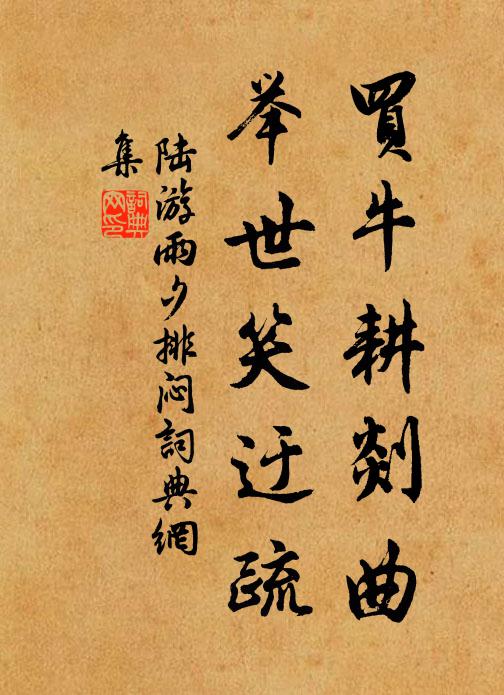 買牛耕剡曲
举世笑迂疏
陆游雨夕排闷詞典網
集
詞典
网印